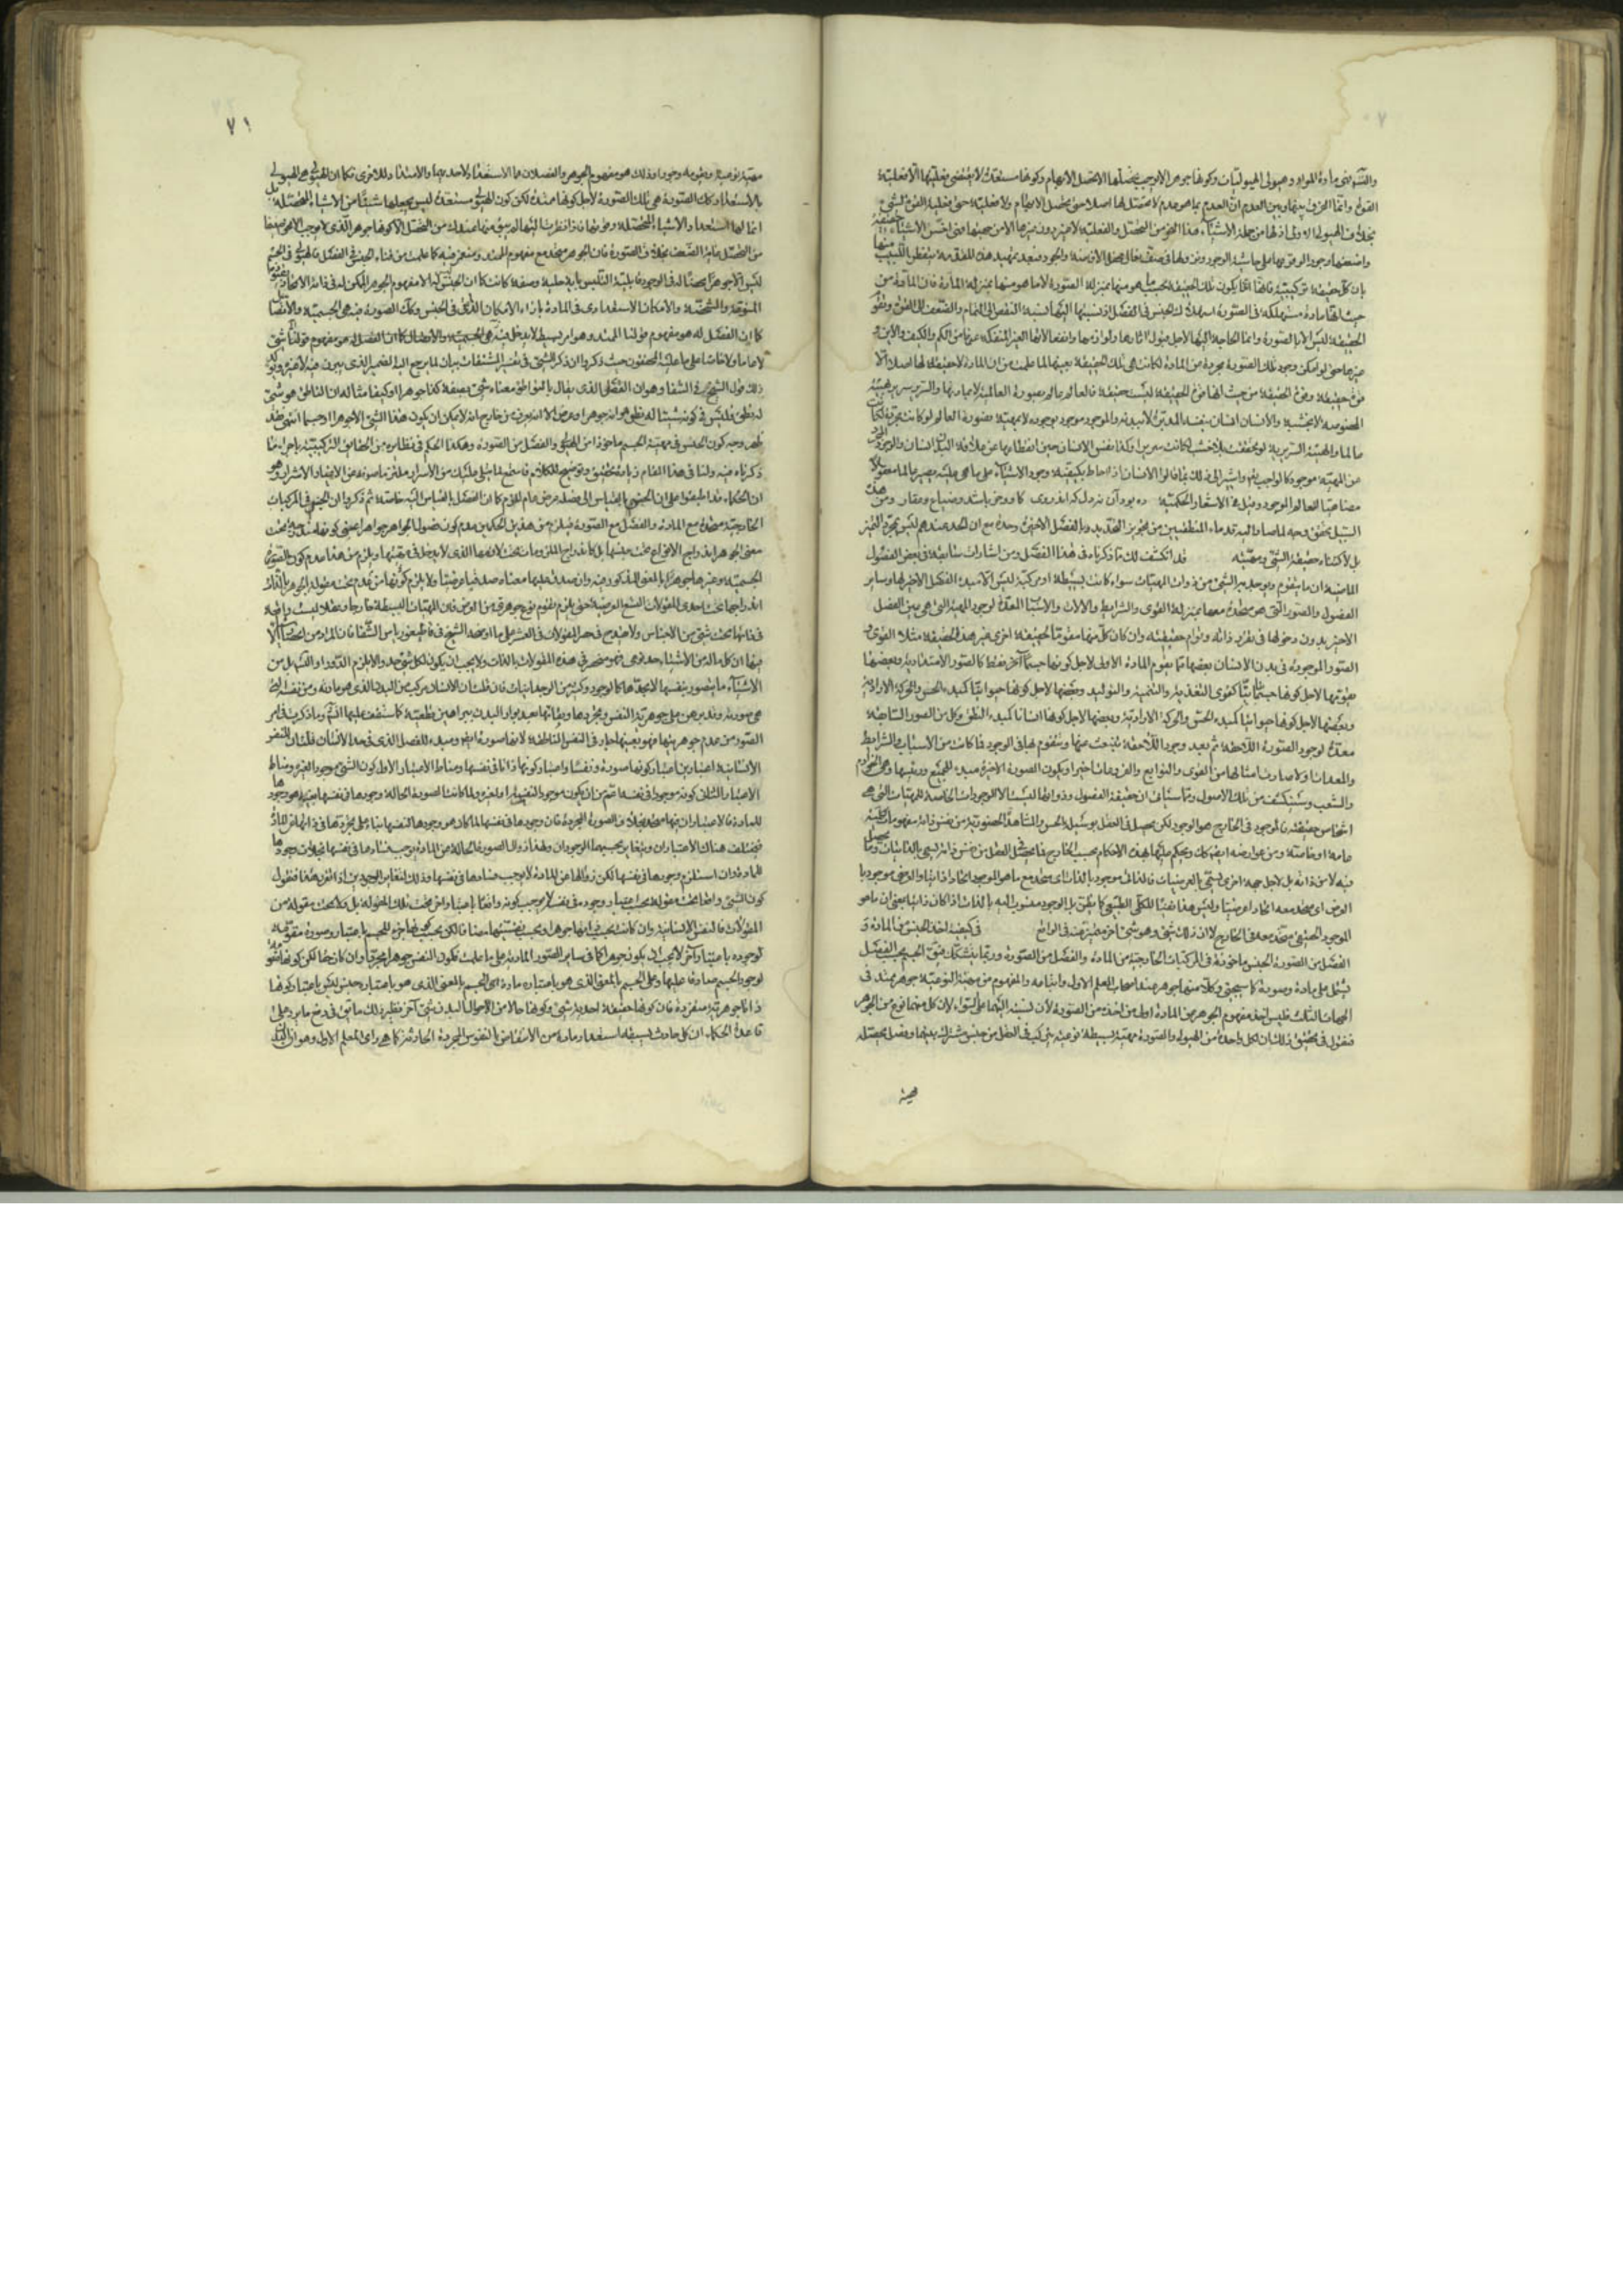 مادة المواد وهيولى الهيوليات وكونها جوهرا لا يوجب تحصلها الا تحصل الابهام وكونها مستعدة لا يقتضي فعليتها الا فعلية
القوة وانما الفرق بينها وبين العدم ان العدم بما هو عدم لا تحصل له اصلا حتى تحصل الابهام ولا فعلية حتى فعلية القوة لشيء
بخلاف الهيولى الاولى اذ لها من جملة الاشياء هذا النحو من التحصل والفعلية لا غير دون غيرها الا من جهتها فهي اخس الاشياء حقيقة
واضعفها وجودا لوقوعها على حاشية الوجود ونزولها في صف نعال محفل الافاضة والجود وبعد تمهيد هذه المقدمة يتفطن اللبيب منها
بان كل حقيقة تركيبية فانها انما يكون تلك الحقيقة بحسب ما هو منها بمنزلة الصورة لا ما هو منها بمنزلة المادة فان المادة من
حيث انها مادة مستهلكة في الصورة استهلاك الجنس في الفصل اذ نسبتها اليها نسبة النقص الى التمام والضعف الى القوة وتقوم
الحقيقة ليس الا بالصورة وانما الحاجة اليها لاجل قبول آثارها ولوازمها وانفعالاتها الغير المنفكة عنها من الكم والكيف والاين و
غيرها حتى لو امكن وجود تلك الصورة مجردة عن المادة لكانت هي تلك الحقيقة بعينها لما علمت من ان المادة لا حقيقة لها اصلا الا
قوة حقيقة وقوة الحقيقة من حيث انها قوة الحقيقة ليست حقيقة فالعالم عالم بصورة العالمية لا بمادتها والسرير سرير بهيئته
المخصوصة لا بخشبيته والانسان انسان بنفسه المدبرة لا ببدنه والموجود موجود بوجوده لا بمهيته فصورة العالم لو كانت مجردة لكان
عالما والهيئة السريرية لو تحققت بلا خشب لكانت سريرا وكذا نفس الانسان حين انقطاعها عن علاقة البدن انسان والوجود المجرد
عن المهية موجود كالواجب تعالى واشير الى ذلك بما قالوا الانسان اذا احاط بكيفية وجود الاشياء على ما هي عليه يصير عالما معقولا
مضاهيا للعالم الموجود وقيل في الاشعار الحكمية ومن هذا
السبيل تحقق وجه لما صار اليه قدماء المنطقيين من تجويز التحديد بالفصل الاخير وحده مع ان الحد عندهم ليس لمجرد التميز
بل لاكتناه حقيقة الشيء ومهيته قد انكشف لك مما ذكرناه في هذا الفصل ومن اشارات سابقة في بعض الفصول
الماضية ان ما يتقوم ويوجد به الشيء من ذوات المهيات سواء كانت بسيطة او مركبة ليس الا مبدء الفصل الاخير لها وساير
الفصول والصور التي هي متحدة معها بمنزلة القوى والشرايط والآلات والاسباب المعدة لوجود المهية التي هي عين الفصل
الاخير بدون دخولها في تقرر ذاته وقوام حقيقته وان كان كل منها مقوما لحقيقة اخرى غير هذه الحقيقة مثلا القوى و
الصور الموجودة في بدن الانسان بعضها مما يقوم المادة الاولى لاجل كونها جسما آخر فقط كالصور الامتدادية وبعضها
يقومها لاجل كونها جسما نباتيا كقوى التغذية والتنمية والتوليد وبعضها لاجل كونها حيوانيا كمبدء الحس والحركة الارادية
وبعضها لاجل كونها انسانا كمبدء النطق وكل من الصور السابقة
معدة لوجود الصورة اللاحقة ثم بعد وجود اللاحقة ينبعث عنها وتتقوم بها في الوجود فما كانت من الاسباب والشرايط
والمعدات اولا صارت امثالها من القوى والتوابع والفروعات اخيرا ويكون الصورة الاخيرة مبدء للجميع ورئيسها وهي الخوادم
والشعب وسينكشف من تلك الاصول ومما سيأتي ان حقيقة الفصول وذواتها ليست الا الوجودات الخاصة للمهيات التي هي
اشخاص حقيقية فالموجود في الخارج هو الوجود لكن يحصل في العقل بوسيلة الحس او المشاهدة الحضورية من نفس ذاته مفهومات كلية
عامة او خاصة ومن عوارضه ايضا كك ويحكم عليها بهذه الاحكام بحسب الخارج فما يحصل في العقل من نفس ذاته يسمى بالذاتيات وما يحصل
فيه لا من ذاته بل لاجل جهة اخرى يسمى بالعرضيات فالذاتي موجود بالذات اي متحد مع ما هو الموجود اتحادا ذاتيا والعرضي موجود با
العرض اي متحد معه اتحادا عرضيا وليس هذا نفيا للكلي الطبيعي كما يظن بل الوجود منسوب اليه بالذات اذا كان ذاتيا بمعنى ان ما هو
الموجود الحقيقي متحد معه في الخارج لا ان ذلك شيء وهو شيء آخر متميز عنه في الواقع في كيفية اخذ الجنس من المادة و
الفصل من الصورة الجنس مأخوذة في المركبات الخارجية من المادة والفصل من الصورة وربما يتشكك فيق ان الجسم بحسب الفصل
يشتمل على مادة وصورة كما سيجيء وكلا منهما جوهر عند اصحاب المعلم الاول واتباعه والمفهوم من مهية النوعية جوهر ممتد في
الجهات الثلث فليس اخذ مفهوم الجوهر من المادة اولى من اخذه من الصورة لان نسبته اليهما على السواء لان كل منهما نوع من الجوهر
فنقول في تحقيق ذلك ان لكل واحدة من الهيولى والصورة مهية بسيطة نوعية يتركب في العقل من جنس مشترك بينهما وفصل يحصله
مهية نوعية ويقومه وجودا وذلك هو مفهوم الجوهر والفصلان هما الاستعداد لاحدهما والامتداد للاخرى فكما ان الهيولى هي الهيولى
بالاستعداد وكك الصورة هي تلك الصورة لاجل كونها ممتدة لكن كون الهيولى مستعدة ليس يجعلها شيئا من الاشياء المحصلة بل
انما لها استعداد الاشياء المحصلة وقوتها فاذا نظرت اليها لم يبق منها عندك من التحصل الا كونها جوهرا الذي لا يوجب الا نحوا ضعيفا
من التحصل غاية الضعف بخلاف الصورة فان الجوهر متحد مع مفهوم الممتد ومنغمر فيه كما علمت من فناء الجنس في الفصل فالهيولى في الجسم
ليس الا جوهرا محضا له في الوجود قابلية التلبس باية حلية وصفة كانت كما ان الجنس ليس الا مفهوم الجوهر الممكن له في ذاته الاتحاد باية
المنوعة والمشخصة والامكان الاستعدادي في المادة بازاء الامكان الذاتي في الجنس وكك الصورة فيه هي الجسمية والاتصال
كما ان الفصل له هو مفهوم قولنا الممتد وهو امر بسيط لا يدخل فيه شيء لا
لا عاما ولا خاصا على ما عليه المحققون حيث ذكروا ان ذكر الشيء في تفسير المشتقات بيان لما يرجع اليه الضمير الذي يبرز فيه لا غير ويؤيد
ذلك قول الشيخ في الشفا وهو ان الفصل الذي يقال بالتواطؤ معناه شيء بصفة كذا جوهرا او كيفا مثاله ان الناطق هو شيء
له نطق فليس في كونه شيئا له نطق هو انه جوهر او عرض الا انه يعرف من خارج انه لا يمكن ان يكون هذا الشيء الا جوهرا او جسما انتهى فقد
ظهر وجه كون الجنس في مهية الجسم مأخوذا من الهيولى والفصل من الصورة وهكذا الحكم في نظايره من الحقايق التركيبية باجراء ما
ذكرناه فيه ولنا في هذا المقام زيادة تحقيق وتوضيح للكلام فاستمع لما يتلى عليك من الاسرار ملتزما صونه عن الاغيار الاشرار وهو
ان الحكماء قد اطبقوا على ان الجنس بالقياس الى فصله عرض عام لازم كما ان الفصل بالقياس اليه خاصة ثم ذكروا ان الجنس في المركبات
الخارجية متحد مع المادة والفصل مع الصورة فيلزم من هذين الحكمين عدم كون فصول الجواهر جواهر بمعنى كونها مندرجة تحت
معنى الجوهر اندراج الانواع تحت جنسها بل كاندراج الملزومات تحت لازمها الذي لا يدخل في مهيتها ويلزم من هذا عدم كون الصورة
الجسمية وغيرها جوهرا بالمعنى المذكور فيه وان صدق عليها معناه صدقا عرضيا ولا يلزم من عدم تحت مقولة الجوهر بالذات
اندراجها تحت احدى المقولات التسع العرضية حتى يلزم تقوم نوع جوهري من العرض فان المهيات البسيطة خارجا وعقلا ليست واقعة
في ذاتها تحت شيء من الاجناس ولا يقدح في حصر المقولات في العشر على ما اوضحه الشيخ في قاطيغورياس الشفا فان المراد من انحصار الاشياء
فيها ان كل ما له من الاشياء حد نوعي فهو منحصر في هذه المقولات بالذات ولا يجب ان يكون لكل شيء حد والا يلزم الدور او التسلسل بل من
الاشياء ما يتصور بنفسها لا بحدها كالوجود وكثير من الوجدانيات فان قلت ان الانسان مركب من البدن الذي هو مادته ومن نفسه التي
هي صورته وقد برهن على جوهرية النفس وتجردها وبقائها بعد بوار البدن ببراهين قطعية كما ستقف عليها انشاء وما ذكرت في امر
الصور من عدم جوهريتها فهو بعينها جار في النفس الناطقة لانها صورة ايضا ومبدء للفصل الذي في حد الانسان قلنا ان للنفس
الانسانية اعتبارين اعتبار كونها صورة ونفسا واعتبار كونها ذاتا في نفسها ومناط الاعتبار الاول كون الشيء موجودا لغيره ومناط
الاعتبار الثاني كونه موجودا في نفسه اعم من ان يكون موجودا لنفسه او لغيره ولما كانت الصورة الحالة وجودها في نفسها بعينه هو وجودها
للمادة فالاعتباران فيها متحد بخلاف الصورة المجردة فان وجودها في نفسها لما كان هو وجودها لنفسها بناء على تجردها في ذاتها عن المادة
فيختلف هناك الاعتباران ويتغاير بحسبهما الوجودان ولهذا زوال الصورة الحالة عن المادة يوجب فسادها في نفسها بخلاف وجودها
للمادة وان استلزم وجودها في نفسها لكن زوالها عن المادة لا يوجب فسادها في نفسها وذلك لتغاير الوجودين اذا تقرر هذا فنقول
كون الشيء واقعا تحت مقولة بحسب اعتبار وجوده في نفسه لا يوجب كونه واقعا باعتبار آخر تحت تلك المقولة بل ولا تحت مقولة من
المقولات فالنفس الانسانية وان كانت بحسب ذاتها جوهرا وبحسب نفسيتها مضافا لكن بحسب كونها جزء للجسم باعتبار وصورة مقومة
لوجوده باعتبار آخر لا يجب ان يكون جوهرا كما في ساير الصور المادية على ما علمت فكون النفس جوهرا مجردا وان كان حقا لكن كونها مقوما
لوجود الجسم صادقا عليها وعلى الجسم بالمعنى الذي هو باعتباره مادة اي الجسم بالمعنى الذي هو باعتباره جنس ليس باعتبار كونها
ذاتا جوهرية منفردة فان كونها حقيقة احدية شيء وكونها حالا من الاحوال البدن شيء آخر نظير ذلك ما يق في دفع ما يرد على
قاعدة الحكماء ان كل حادث يسبقه استعداد مادة من الانتقاض بالنفوس المجردة الحادثة كما هو راي المعلم الاول وهو ان البدن
٧١